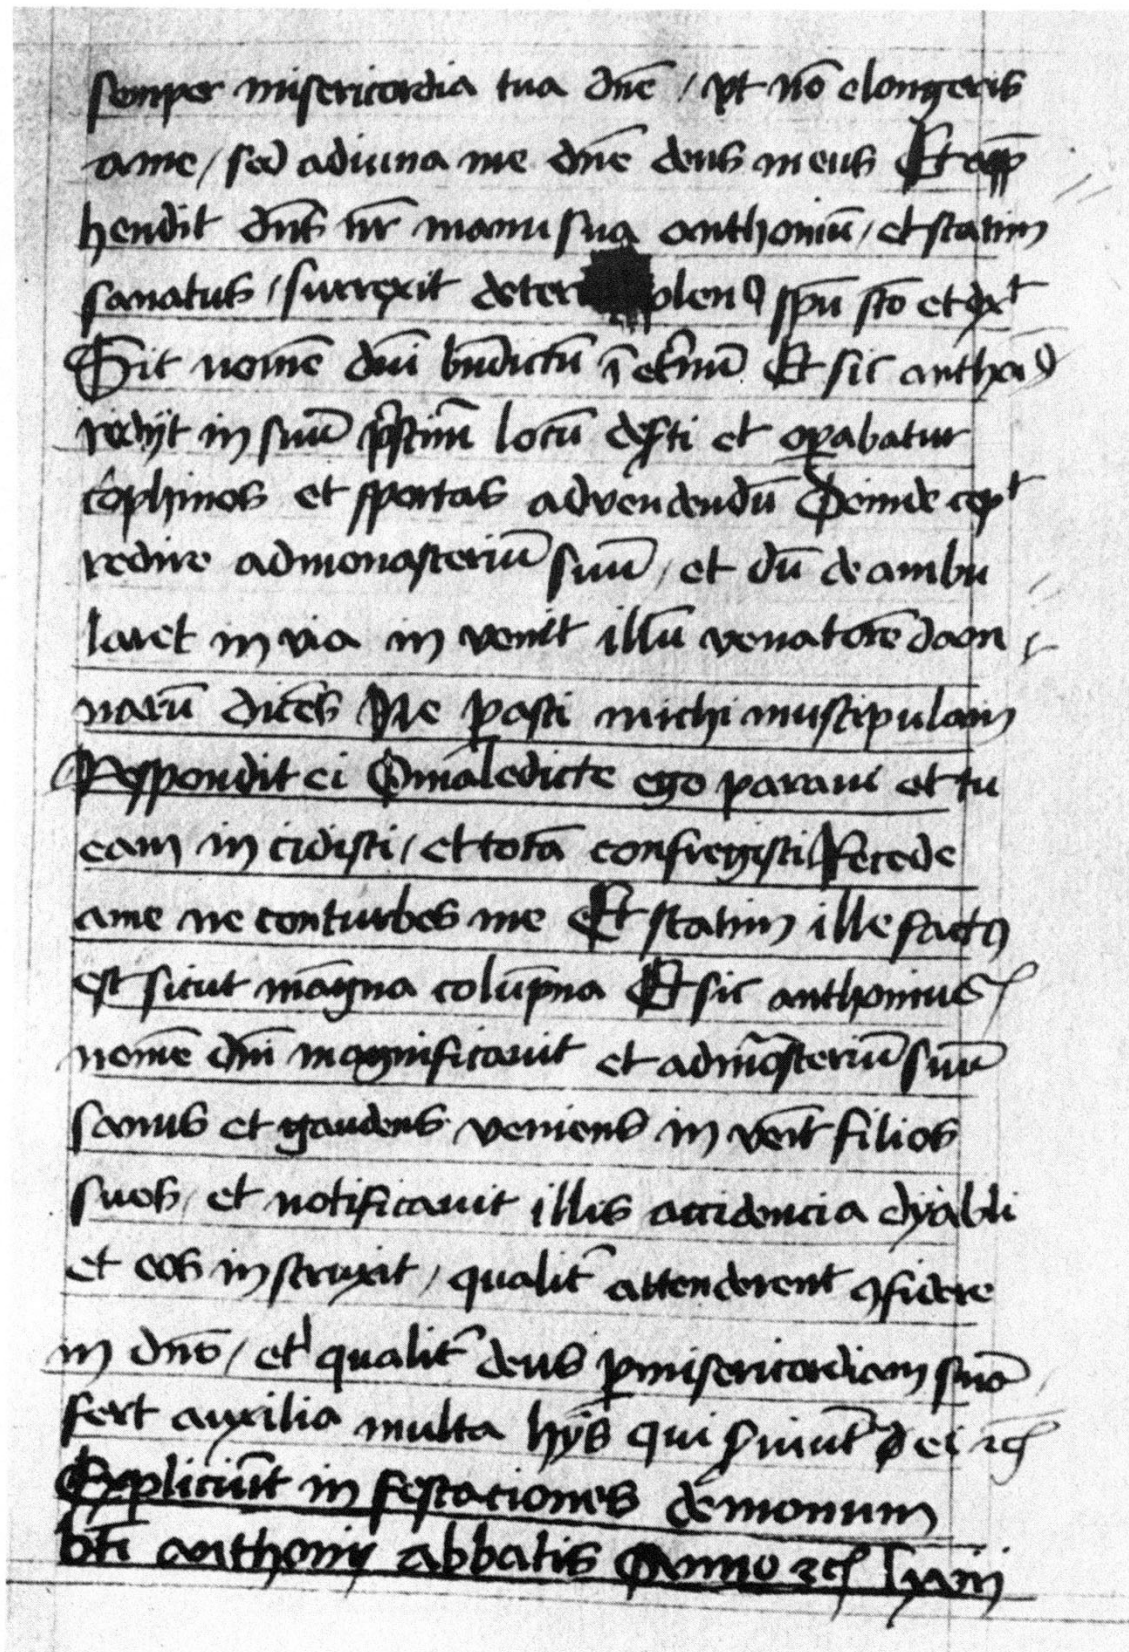 semper misericordia tua dn̄e / vt nō elongeris
a me / sed adiuua me dn̄e deus meus Et app̄
hendit dn̄s nr̄ manu sua anthoniū / et statim
sanatus / surrexit de ter plenꝰ spū sc̄o et dixt
Sit nomē dn̄i bn̄dictū ī et̄nū Et sic anthoīꝰ
redijt in suū pͥstinū locū des̄ti et oꝑabatur
cophinos et sportas ad vendendū Deinde cepͭ
redire ad monasteriū suū / et dū de ambu
laret in via in venit illū venatorē daom
narū dicēs Ne ꝑasti michi muscipulam
Respondit ei O maledicte ego paraui et tu
eam in cidisti / et totā confregisti Recede
a me ne conturbes me Et statim ille factꝰ
est sicut māgna colūpna Et sic anthonius
nomē dn̄i magnificauit et ad mōsteriū suū
sanus et gaudens veniens in venīt filios
suos / et notificauit illis accidencia dyabli
et eos in struxit / qualit̄ attenderent ꝯfidere
in dn̄o / et qualit̄ deus ꝑ misericordiam suā
fert auxilia multa hijs qui s̄uiūt ei ꝛc̄
Expliciūt in festaciones demonum
bt̄i anthonij abbatis Anno ꝛc̄